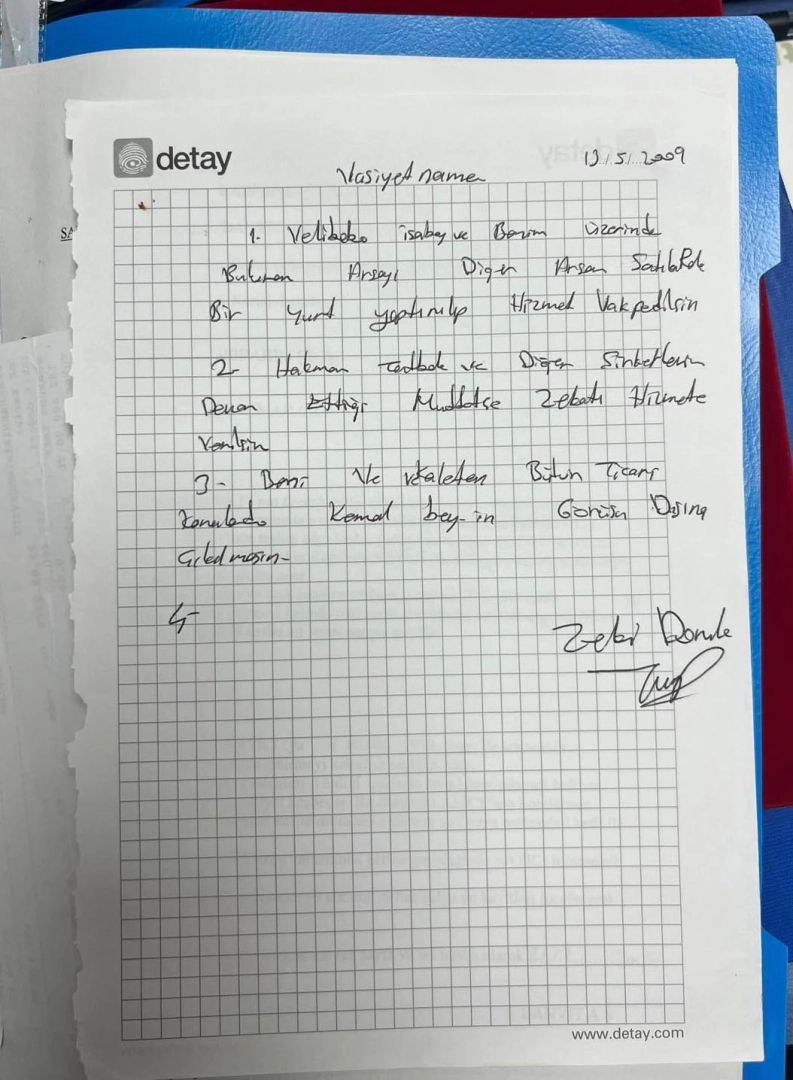 detay
Vasiyet name
13/5/2009
1- Velibaba isabey ve Benim üzerinde
Bulunan Arsayı Diğer Arsam Satılarak
Bir yurt yaptırılıp Hizmet Vakfedilsin
2- Hakman ve Diğer Şirketlerin
Devam Ettiği Müddetçe Zekatı Hizmete
Verilsin
3- Beni Ve vekaleten Bütün Ticari
Konularda Kemal bey-in Görüşü Dışına
Çıkılmasın-
4-
Zeki
www.detay.com